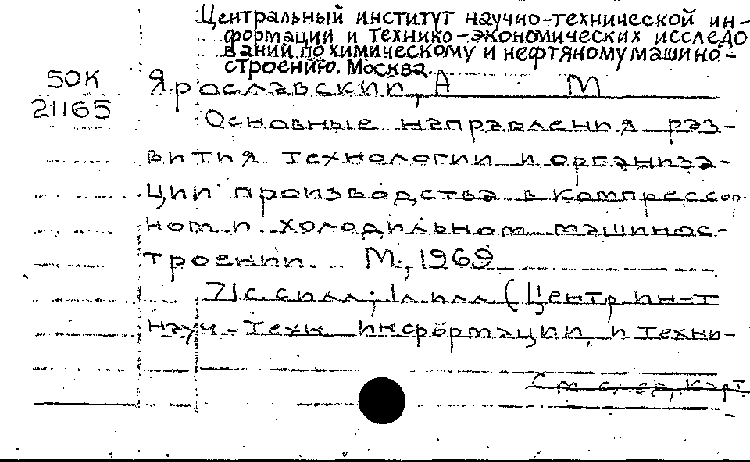 Центральный институт научно-технической ин-
формации и технико-экономических исследо
ваний по химическому и нефтяному машино-
строению. Москва.
50К
21165
Ярославский, А М
Основные направления раз-
вития технологии и организа-
ции производства в компрессор-
ном и холодильном машинос-
троении. М., 1969
71с. с илл.; 1л илл (Центр ин-т
науч-техн информации и техни-
См. след. карт